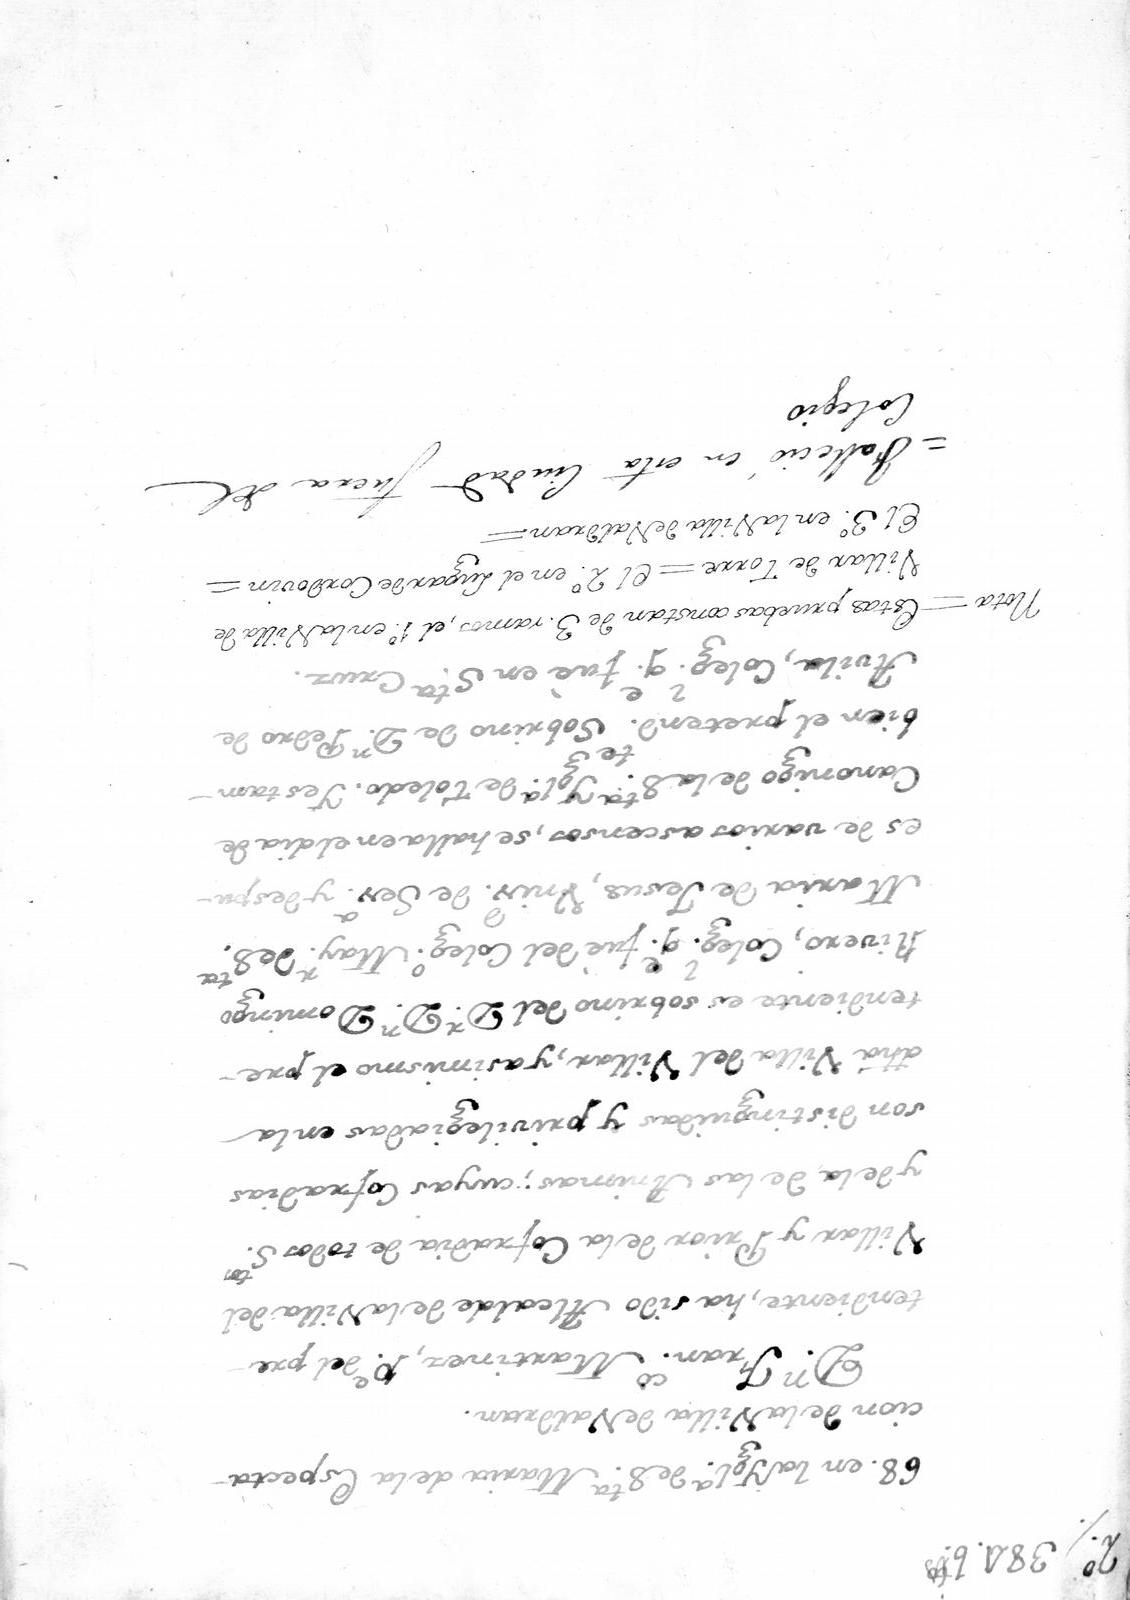 2º/. 381. b.
68. en la Ygl.ª de S.ta Maria de la Especta-
cion de la Villa de Valdran.
D.n Fran.co Martinez, P.e del pre-
tendiente, ha sido Alcalde de la Villa del
Villar y Prior de la Cofradia de todos S.tos
y de la de las Animas; cuyas Cofradias
son distinguidas y privilegiadas en la
dha Villa del Villar, y asimismo el pre-
tendiente es sobrino del D.r D.n Domingo
Rivero, Coleg.l q.e fuè del Coleg.o May.r de S.ta
Maria de Jesus, Univ.d de Sev.a y despu-
es de varios ascensos, se halla en el dia de
Canonigo de la S.ta Ygl.ª de Toledo. Y estam-
bien el pretend.te Sobrino de D.n Pedro de
Avila, Coleg.l q.e fuè en S.ta Cruz.
Nota = Estas pruebas constan de 3. ramos, el 1.º en la Villa de
Villar de Torre = El 2.º en el Lugar de Cordovin =
El 3.º en la Villa de Valdran =
= Fallecio en esta Ciudad fuera del
Colegio